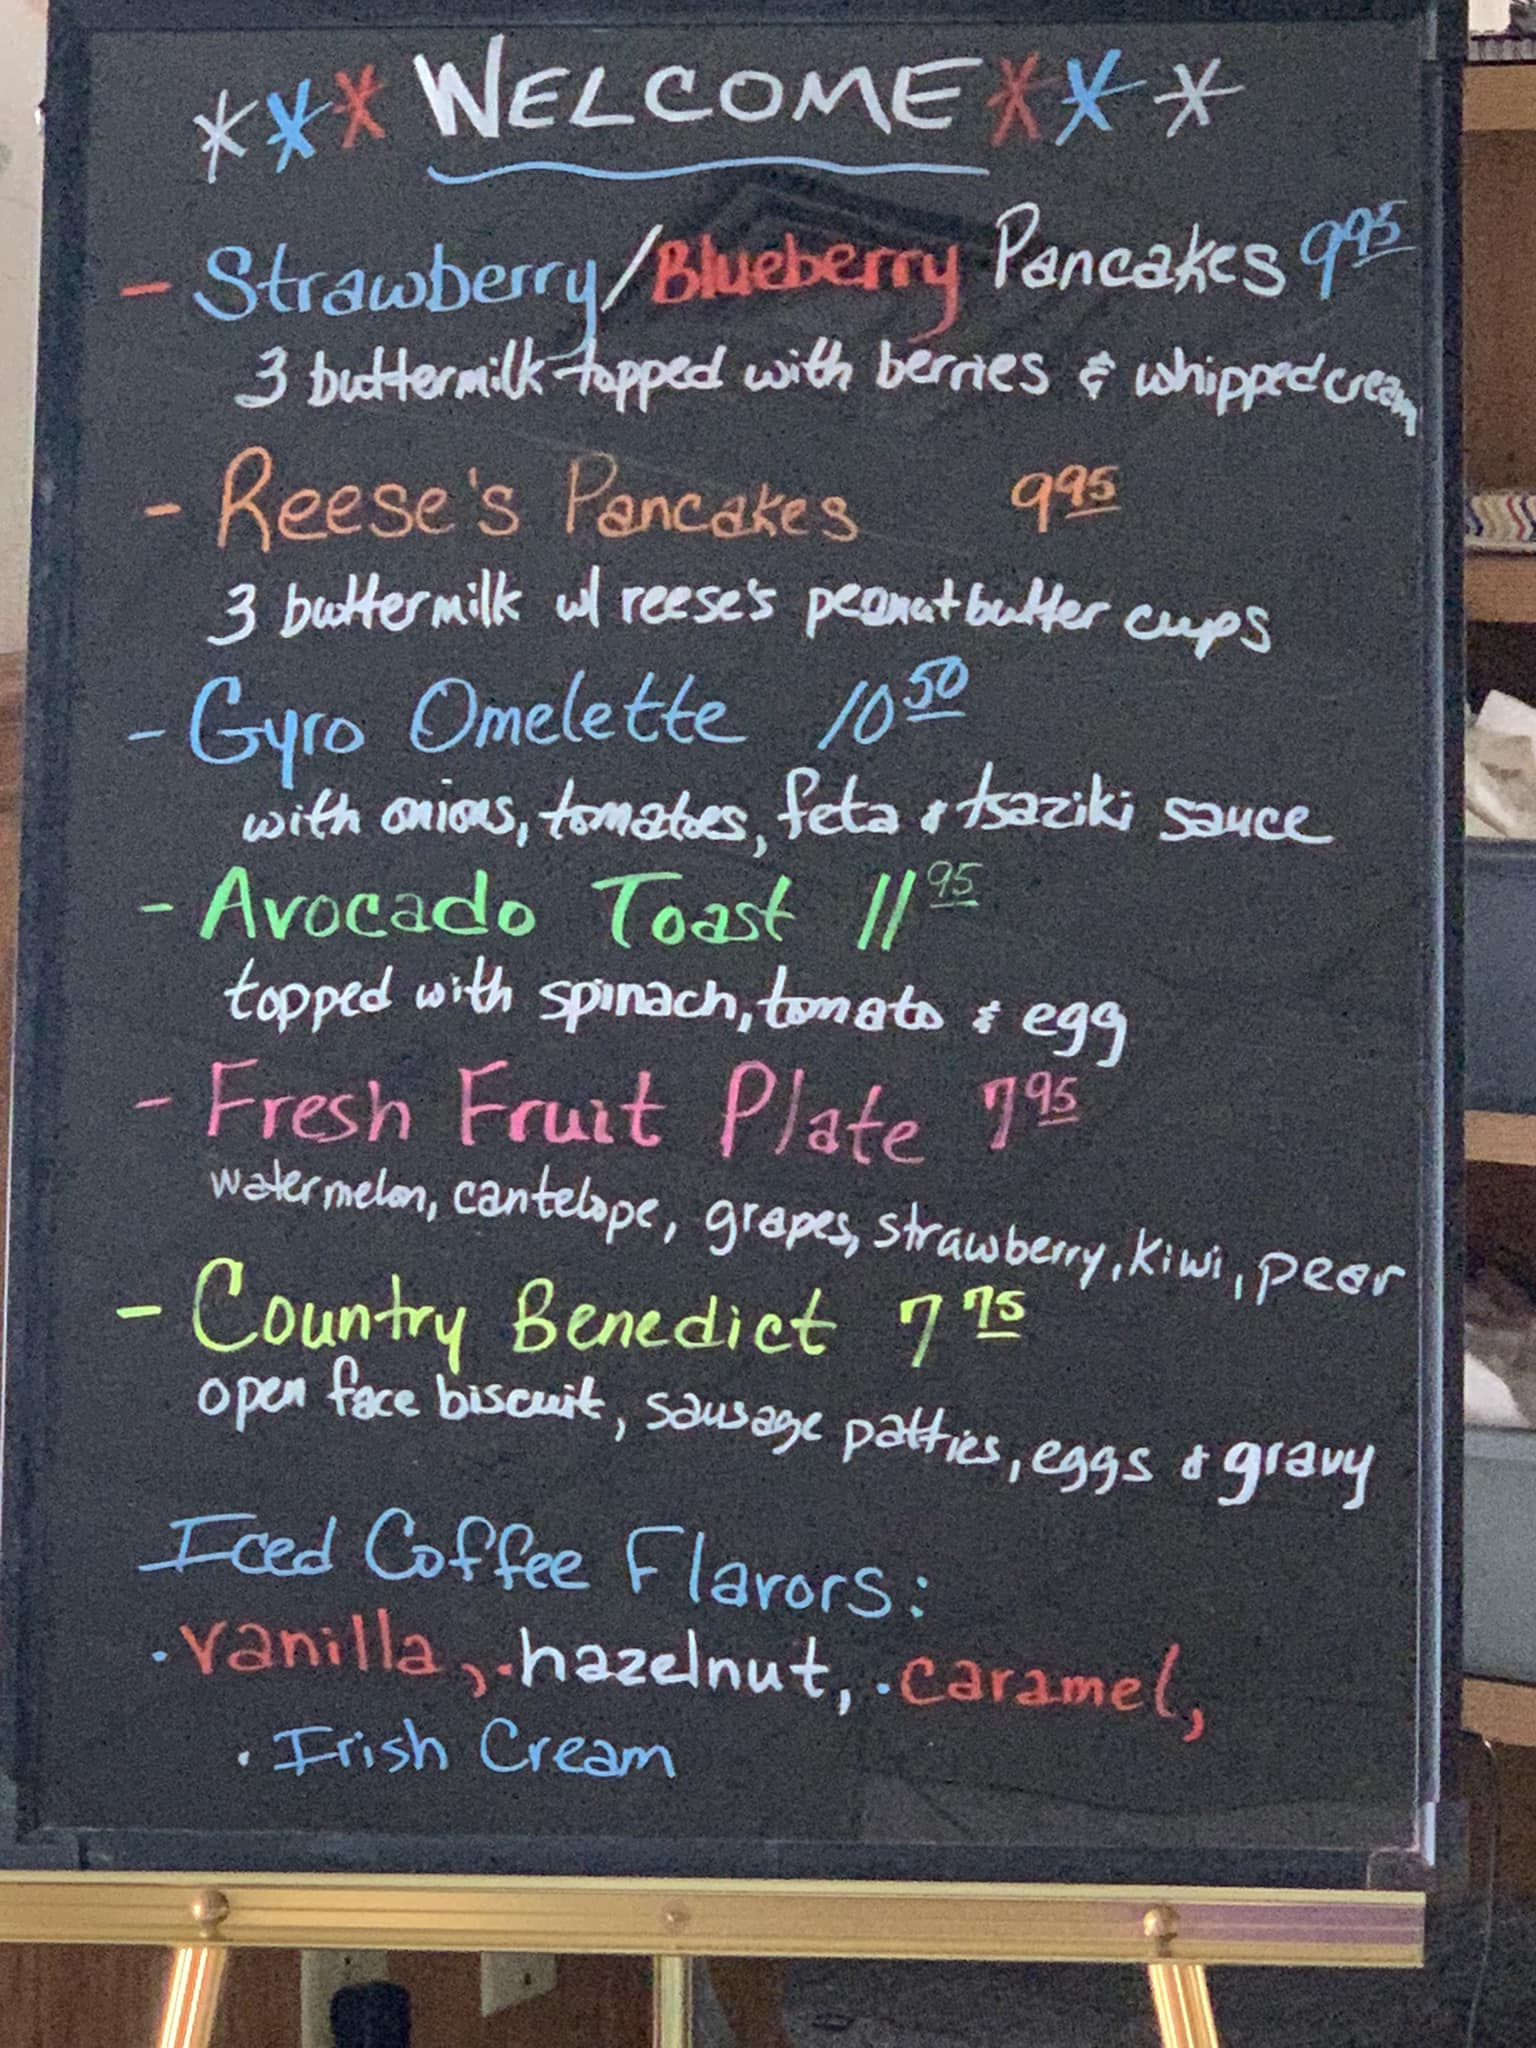 *** WELCOME ***
- Strawberry/Blueberry Pancakes 9 95
3 buttermilk topped with berries & whipped cream
- Reese's Pancakes 9 95
3 buttermilk w/ reese's peanut butter cups
- Gyro Omelette 10 50
with onions, tomatoes, feta & tsaziki sauce
- Avocado Toast 11 95
topped with spinach, tomato & egg
- Fresh Fruit Plate 7 95
watermelon, cantelope, grapes, strawberry, kiwi, pear
- Country Benedict 7 75
open face biscuit, sausage patties, eggs & gravy
Iced Coffee Flavors:
· vanilla, · hazelnut, · caramel,
· Irish Cream